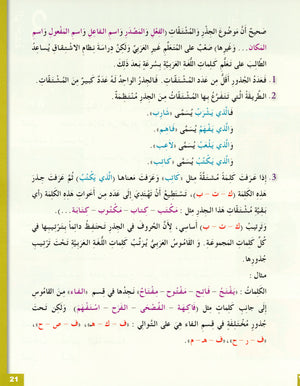 صَحيحٌ أَنَّ مَوْضوعَ الجَذْرِ وَالمُشْتَقّاتِ (الفِعْلِ وَالمَصْدَرِ وَاسمِ الفاعِلِ وَاسمِ المَفْعولِ وَاسمِ
المَكانِ... وَغَيرِها) صَعْبٌ عَلى المُتَعَلِّمِ غَيرِ العَرَبيِّ وَلكِنَّ دِراسَةَ نِظامِ الاشْتِقاقِ يُساعِدُ
الطّالِبَ عَلى تَعَلُّمِ كَلِماتِ اللُّغَةِ العَرَبيَّةِ بِسُرْعَةٍ بَعْدَ ذلِكَ:
1. فَعَدَدُ الجُذورِ أَقَلُّ مِن عَدَدِ المُشْتَقّاتِ. فَالجَذْرُ الواحِدُ لَهُ عَدَدٌ كَبيرٌ مِنَ المُشْتَقّاتِ.
2. الطَّريقَةُ الَّتي تَتَفَرَّعُ بِها المُشْتَقّاتُ مِنَ الجَذْرِ مُنْتَظِمَةٌ:
فَالَّذي يَشْرَبُ يُسَمّى «شارِب»
وَالَّذي يَفْهَمُ يُسَمّى «فاهِم»
وَالَّذي يَلْعَبُ يُسَمّى «لاعِب»
وَالَّذي يَكْتُبُ يُسَمّى «كاتِب»
3. إِذا عَرَفْتَ كَلِمَةً مُشْتَقَّةً مِثلَ «كاتِب» وَعَرَفْتَ مَعناها (الَّذي يَكْتُبُ) ثُمَّ عَرَفْتَ جَذرَ
هذِهِ الكَلِمَةِ (ك – ت – ب)، تَسْتَطيعُ أَنْ تَهْتَديَ إِلى عَدَدٍ مِن أَخَواتِ هذِهِ الكَلِمَةِ (أَي
بَقيَّةِ مُشْتَقّاتِ هذا الجَذرِ مِثل: مَكْتَب – كِتاب – مَكْتوب – كِتابَة...).
وَتَرتيبُ (ك – ت – ب) أَساسي، لأَنَّ الحُروفَ في الجَذرِ تَحتَفِظُ دائِماً بِتَرتيبِها في
كُلِّ كَلِماتِ المَجموعَةِ. وَالقاموسُ العَرَبيُّ يُرَتِّبُ كَلِماتِ اللُّغَةِ العَرَبيَّةِ تَحْتَ تَرتيبِ
جُذورِها.
مِثال:
الكَلِماتُ: «يَفْتَحُ – فاتِح – مَفْتوح – مِفْتاح» نَجِدُها في قِسمِ «الفاء» مِنَ القاموسِ
إِلى جانِبِ كَلِماتٍ مِثلِ «فاكِهَة – الفُصْحى – الفَرَح – اسْتَفْهَمَ» وَلكِنْ تَحتَ
جُذورٍ مُخْتَلِفَةٍ في قِسمِ الفاءِ هِيَ عَلى التَّوالي: «ف – ك – هـ»، «ف – ص – ح»،
«ف – ر – ح»، «ف – هـ – م».
21